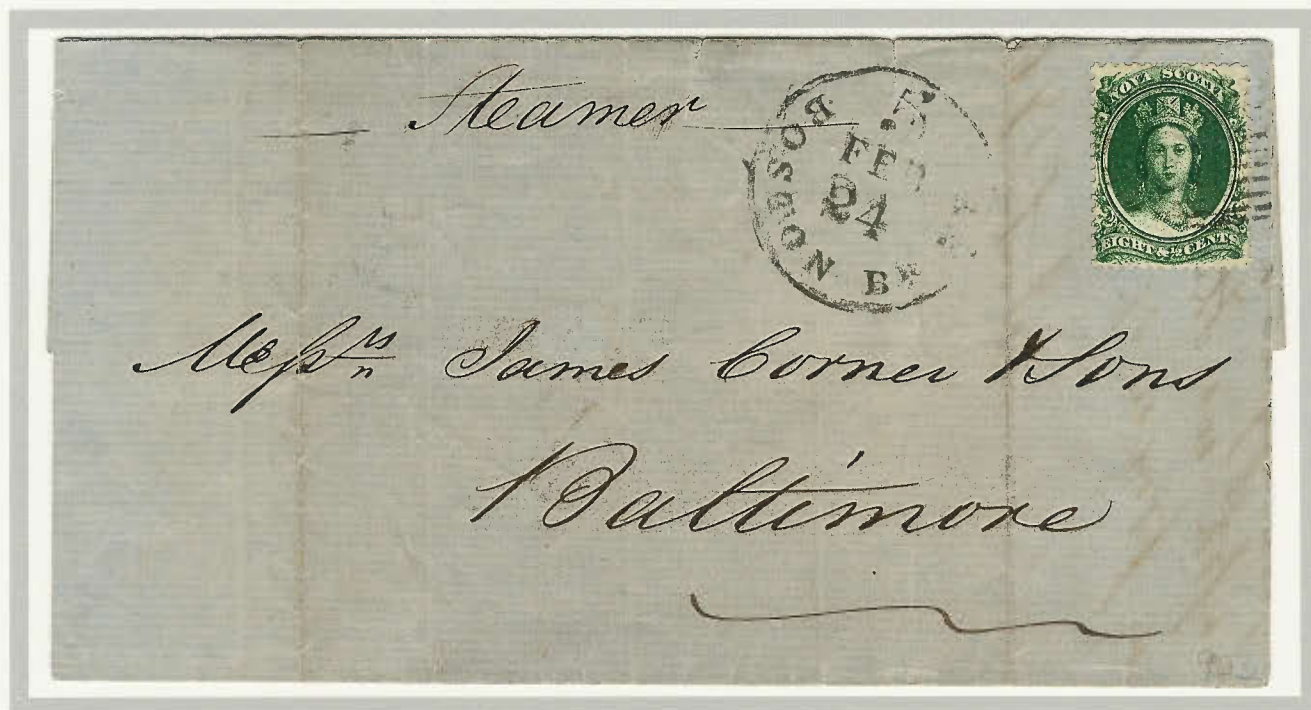 Steamer
BOSTON BR
5
FEB
24
NOVA SCOTIA
EIGHT & ½ CENTS
Messrs James Corner & Sons
Baltimore